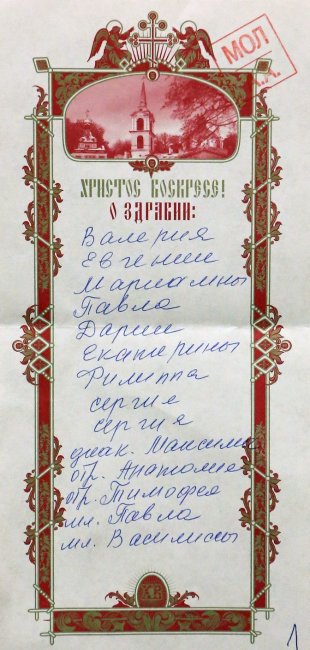 МОЛ
Христос Воскресе!
О здравии:
Валерия
Евгении
Мариамны
Павла
Дарии
Екатерины
Филиппа
Сергие
Сергия
диак. Максима
отр. Анатолия
отр. Тимофея
мл. Павла
мл. Василиссы
1